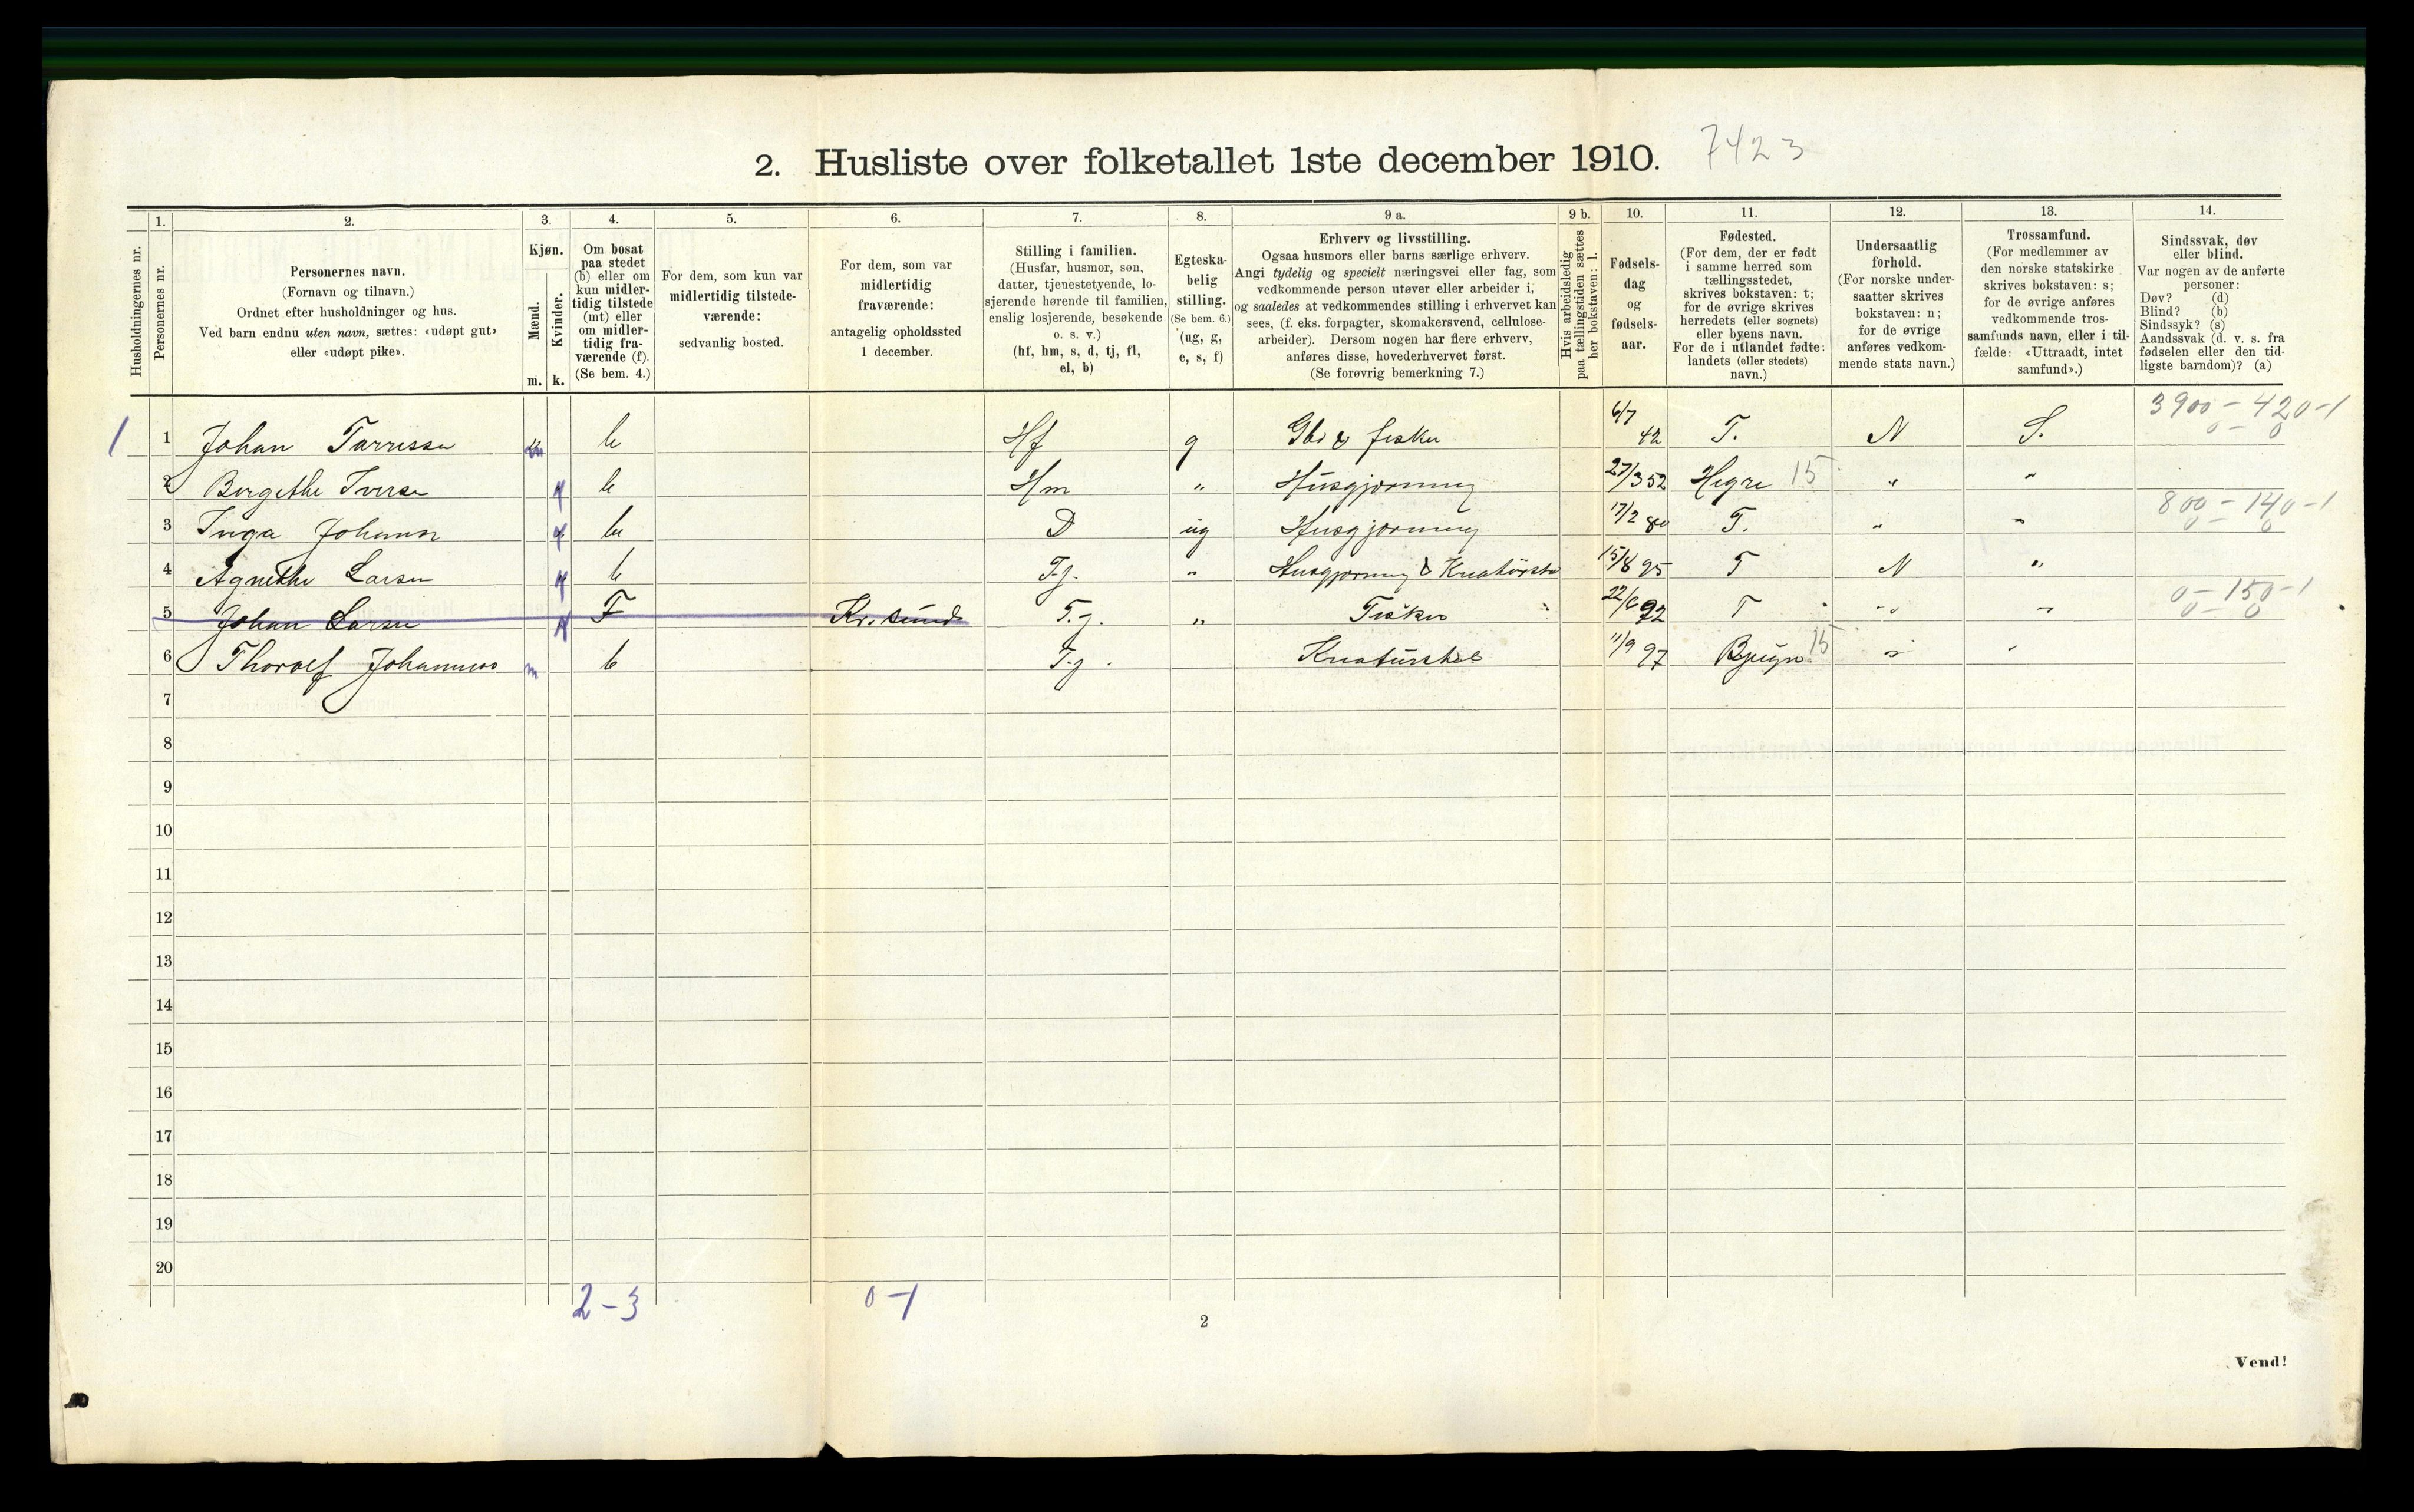 2. Husliste over folketallet 1ste december 1910. 7423
Husholdningernes nr.
1.
Personernes nr.
2.
Personernes navn.
(Fornavn og tilnavn.)
Ordnet efter husholdninger og hus.
Ved barn endnu uten navn, sættes: «udøpt gut»
eller «udøpt pike».
3.
Kjøn.
Mænd.
Kvinder.
m. k.
4.
Om bosat
paa stedet
(b) eller om
kun midler-
tidig tilstede
(mt) eller
om midler-
tidig fra-
værende (f).
(Se bem. 4.)
5.
For dem, som kun var
midlertidig tilstede-
værende:
sedvanlig bosted.
6.
For dem, som var
midlertidig
fraværende:
antagelig opholdssted
1 december.
7.
Stilling i familien.
(Husfar, husmor, søn,
datter, tjenestetyende, lo-
sjerende hørende til familien,
enslig losjerende, besøkende
o. s. v.)
(hf, hm, s, d, tj, fl,
el, b)
8.
Egteska-
belig
stilling.
(Se bem. 6.)
(ug, g,
e, s, f)
9 a.
Erhverv og livsstilling.
Ogsaa husmors eller barns særlige erhverv.
Angi tydelig og specielt næringsvei eller fag, som
vedkommende person utøver eller arbeider i,
og saaledes at vedkommendes stilling i erhvervet kan
sees, (f. eks. forpagter, skomakersvend, cellulose-
arbeider). Dersom nogen har flere erhverv,
anføres disse, hovederhvervet først.
(Se forøvrig bemerkning 7.)
9 b.
Hvis arbeidsledig
paa tællingstiden sættes
her bokstaven: l.
10.
Fødsels-
dag
og
fødsels-
aar.
11.
Fødested.
(For dem, der er født
i samme herred som
tællingsstedet,
skrives bokstaven: t;
for de øvrige skrives
herredets (eller sognets)
eller byens navn.
For de i utlandet fødte:
landets (eller stedets)
navn.)
12.
Undersaatlig
forhold.
(For norske under-
saatter skrives
bokstaven: n;
for de øvrige
anføres vedkom-
mende stats navn.)
13.
Trossamfund.
(For medlemmer av
den norske statskirke
skrives bokstaven: s;
for de øvrige anføres
vedkommende tros-
samfunds navn, eller i til-
fælde: «Uttraadt, intet
samfund».)
14.
Sindssvak, døv
eller blind.
Var nogen av de anførte
personer:
Døv? (d)
Blind? (b)
Sindssyk? (s)
Aandssvak (d. v. s. fra
fødselen eller den tid-
ligste barndom)? (a)
1 1 Johan Tarressen m b Hf g Gbr & fisker 6/7 42 T. N S. 3900 - 420-1 0 - 0
2 Bergethe Iversen b Hm " Husgjerning 27/3 52 Hegre 15 " "
3 Inga Johansen b D ug Husgjerning 17/2 80 T. " " 800 - 140-1 0 - 0
4 Agnethe Larsen b T.j. " Husgjerning & 15/8 95 T N "
5 Johan Larsen F Kr.sund T.j. " Fisker 22/6 92 T " " 0 - 150-1 0 - 0
6 Thorolf m b T.j. 11/9 97 Bjugn 15 " "
7
8
9
10
11
12
13
14
15
16
17
18
19
20
2 - 3 0 - 1
2
Vend!